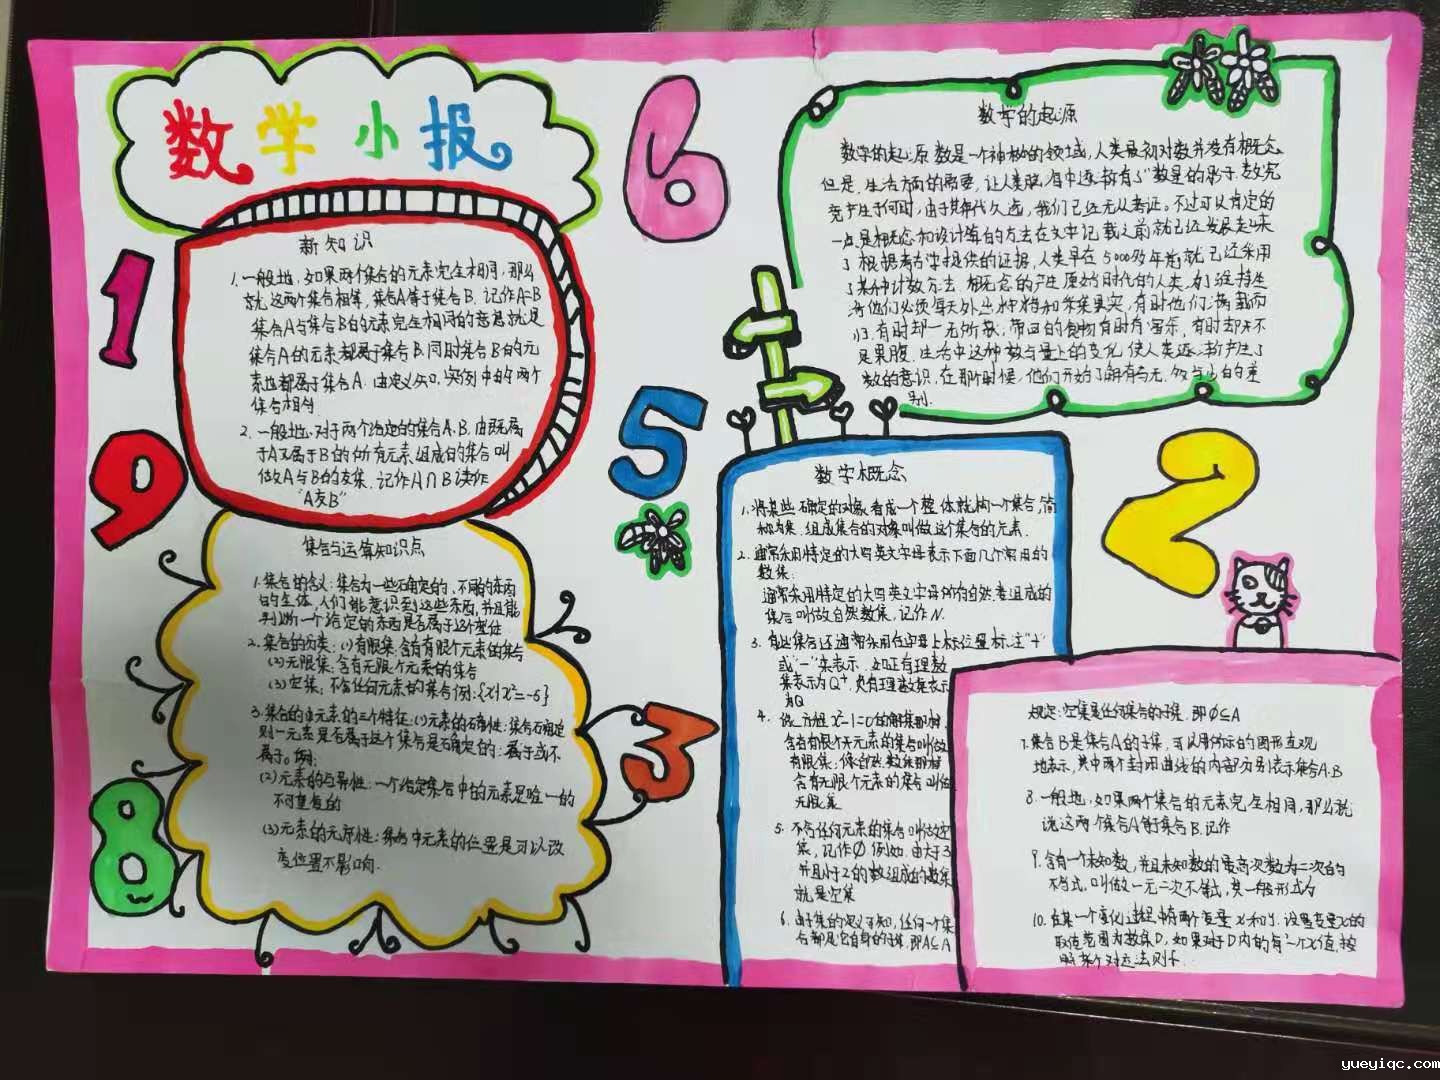 数学小报
新知识
1. 一般地,如果两个集合的元素完全相同,那么
就这两个集合相等,集合A等于集合B.记作A=B
集合A与集合B的元素完全相同的意思就是
集合A的元素都属于集合B.同时集合B的元
素也都属于集合A.由定义知,实例中的两个
集合相等
2. 一般地,对于两个给定的集合A.B.由既属
于A又属于B的所有元素组成的集合叫
做A与B的交集.记作A∩B读作
"A交B"
集合与运算知识点
1.集合的含义:集合为一些确定的、不同的东西
的全体,人们能意识到这些东西,并且能
判断一个给定的东西是否属于这个整体
2.集合的分类:(1)有限集:含有有限个元素的集合
(2)无限集:含有无限个元素的集合
(3)空集:不含任何元素的集合例:{x|x²=-5}
3.集合的中元素的三个特征:(1)元素的确定性:集合确定
则一元素是否属于这个集合是确定的:属于或不
属于。例:
(2)元素的互异性:一个给定集合中的元素是唯一的
不可重复的
(3)元素的无序性:集合中元素的位置是可以改
变位置不影响.
数学的起源
数学的起源 数是一个神秘的领域,人类最初对数并没有概念.
但是,生活方面的需要,让人类脑海中逐渐有了"数量"的影子.数究
竟产生于何时,由于其年代久远,我们已经无从考证。不过可以肯定的
一点是概念和设计算的方法在文字记载之前就已经发展起来
了根据考古学提供的证据,人类早在5000多年前就已经采用
了某种计数方法 概念的产生原始时代的人类,为了维持生
活他们必须每天外出狩猎和采集果实,有时他们满载而
归,有时却一无所获,带回的食物有时有富余,有时却不
足果腹.生活中这种数与量上的变化,使人类逐渐产生了
数的意识,在那个时候,他们开始了解有与无,多与少的差
别.
数学概念
1.将某些确定的对象看成一个整体就构一个集合,简
称为集 组成集合的对象叫做这个集合的元素.
2.通常采用特定的大写英文字母表示下面几个常用的
数集:
通常采用特定的大写英文字母所有自然数组成的
集合叫做自然数集,记作N.
3.有些集合还通常采用在字母上标位置标注"+"
或"-"来表示,如正有理数
集表示为Q⁺,负有理数集表示
为Q
4. 设方程x²-1=0的解集那样,
含有有限个元素的集合叫做
有限集;像自然数集那样
含有无限个元素的集合叫做
无限集
5. 不含任何元素的集合叫做空
集,记作∅ 例如,由大于3
并且小于2的数组成的数集
就是空集
6. 由子集的定义可知,任何一个集
合都是它自身的子集,即A⊆A
规定:空集是任何集合的子集.即∅⊆A
7.集合B是集合A的子集,可以用所示的图形直观
地表示,其中两个封闭曲线的内部分别表示集合A.B
8.一般地,如果两个集合的元素完全相同,那么就
说这两个集合A等于集合B.记作
9.含有一个未知数,并且未知数的最高次数为二次的
不等式,叫做一元二次不等式,其一般形式为
10.在某一个变化过程中有两个变量x和y.设置变量x的
取值范围为数集D,如果对于D内的每一个x值,按
照某个对应法则f.
1
9
8
6
5
3
2
yueyiqc.com